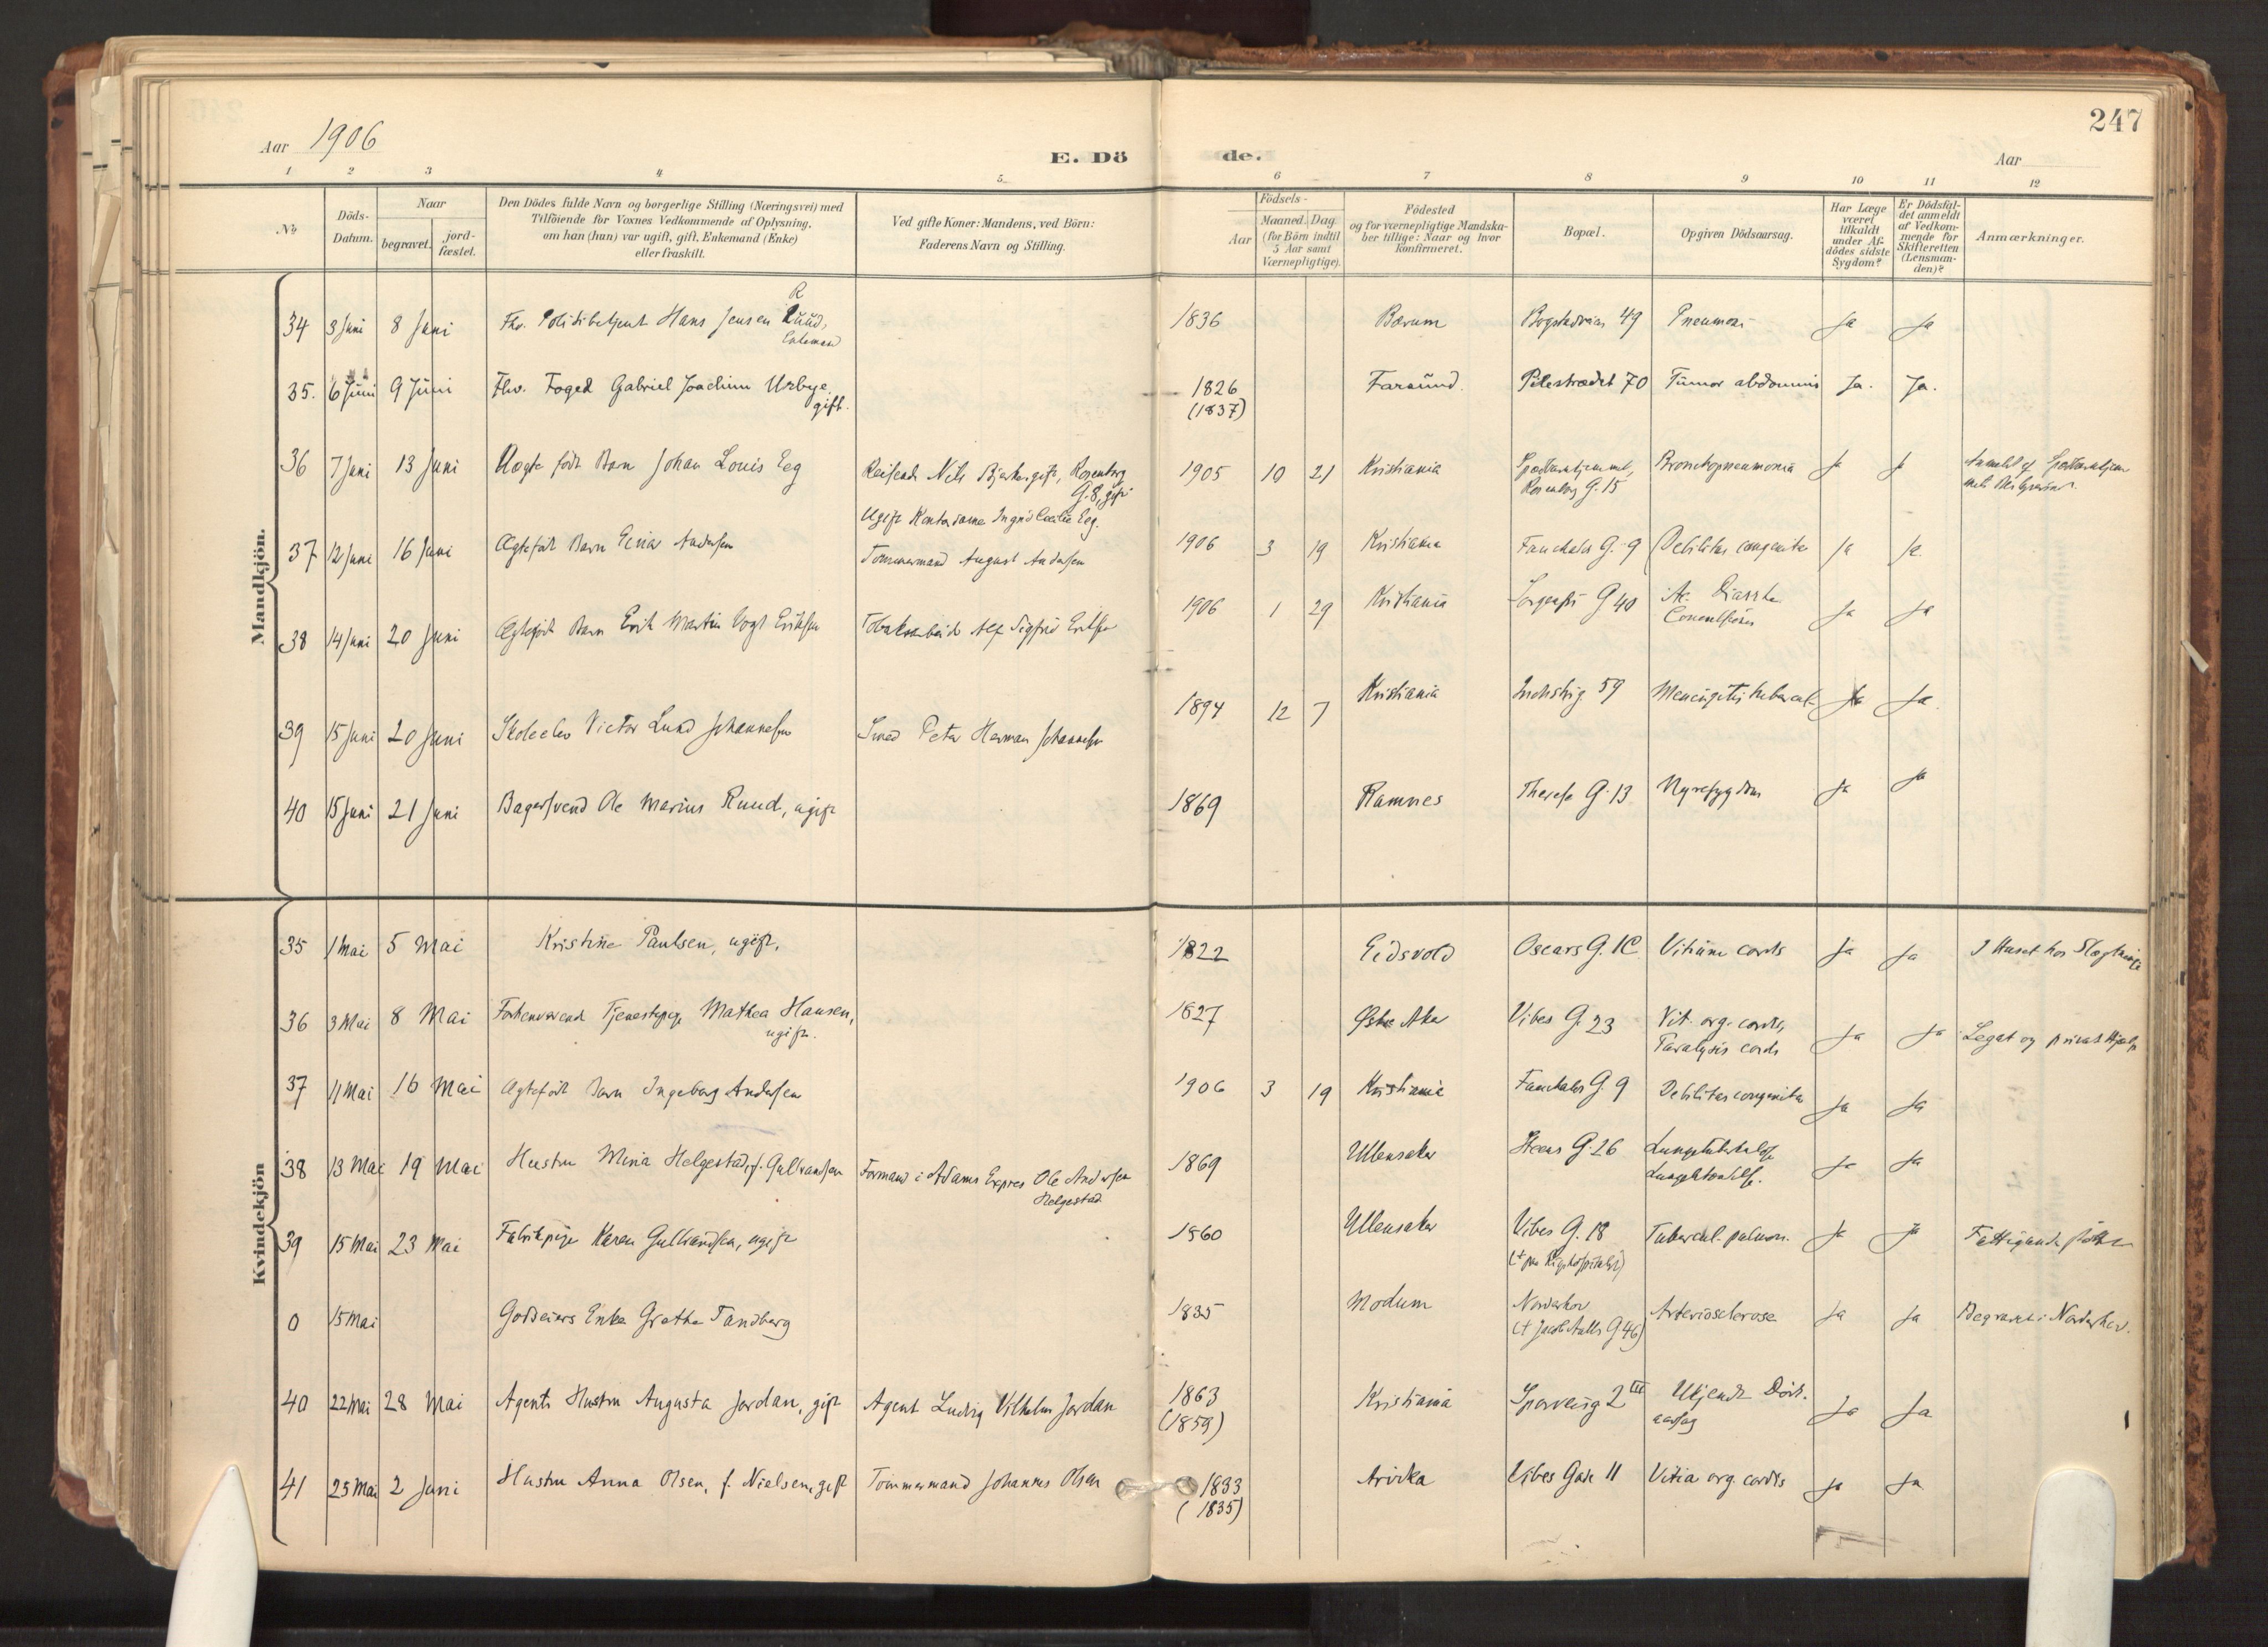 247
Aar 1906
E. Döde.
Aar
1 2 3 4 5 6 7 8 9 10 11 12
No
Döds-Datum.
Naar
begravet.
jord-fæstet.
Den Dödes fulde Navn og borgerlige Stilling (Næringsvei) med
Tilföiende for Voxnes Vedkommende af Oplysning,
om han (hun) var ugift, gift, Enkemand (Enke)
eller fraskilt.
Ved gifte Koner: Mandens, ved Börn:
Faderens Navn og Stilling.
Födsels-
Aar
Maaned. Dag.
(for Börn indtil
5 Aar samt
Værnepligtige).
Födested
og for værnepligtige Mandska-
ber tillige: Naar og hvor
konfirmeret.
Bopæl.
Opgiven Dödsaarsag.
Har Læge
været
tilkaldt
under Af-
dödes sidste
Sygdom?
Er Dödsfal-
det anmeldt
af Vedkom-
mende for
Skifteretten
(Lensman-
den)?
Anmærkninger.
Mandkjön.
34 3 Juni 8 Juni Fhv. Politibetjent Hans Jensen Ruud, 1836 Bærum Bogstadveien 49 Pneumoni Ja Ja
R
Enkemand
35. 6 Juni 9 Juni Fhv. Foged Gabriel Joachim Urbye 1826 Farsund. Pilestrædet 70 Tumor abdominis Ja. Ja.
gift. (1837)
36 7 Juni 13 Juni Uægte født Barn Johan Louis Eeg Reisende Nils Bjerke, gift, Rosenborg 1905 10 21 Kristiania Spædbarnhjemmet, Bronchopneumonia Ja Ja Anmeldt af Spædbarnhjem
G. 8, gift Rosenborg G. 15
Ugift Kontordame Ingrid Cecilie Eeg.
37 12 Juni 16 Juni Ægtefødt Barn Einar Andersen Tømmermand August Andersen 1906 3 19 Kristiania Fauchalds G. 9 Debilitas congenita Ja Ja.
38 14 Juni 20 Juni Ægtefødt Barn Erik Martin Vogt Eriksen Tobaksarbeider Alf Sigfrid Eriksen 1906 1 29 Kristiania Sorgenfri G 40 Ac. Diarrhe Ja Ja
Convulsioner
39 15 Juni 20 Juni Skoleelev Victor Lund Johannesen Smed Peter Herman Johannesen 1894 12 7 Kristiania Industrig 59 Meningitis tubercul. Ja Ja
40 15 Juni 21 Juni Bagersvend Ole Marius Ruud, ugift 1869 Ramnes Therese G. 13 Nyresygdom Ja Ja
Kvindekjön
35 1 Mai 5 Mai Kristine Paulsen, ugift. 1822 Eidsvold Oscars G. 1C Vitium cordis Ja Ja I Huset hos Slægtninge
36 3 Mai 8 Mai Forhenværende Tjenestepige Mathea Hansen, 1827 Østre Aker Vibes G. 23 Vit. org. cordis, Ja Ja Legat og privat Hjælp
ugift. Paralysis cordis
37 11 Mai 16 Mai Ægtefødt Barn Ingeborg Andersen 1906 3 19 Kristiania Fauchalds G. 9 Debilitas congenita Ja Ja
38 13 Mai 19 Mai Hustru Mina Helgestad, f. Gulbrandsen Formand i Adams Expres Ole Andersen 1869 Ullensaker Steens G. 26 Lungetuberkulose Ja Ja
Helgestad
39 15 Mai 23 Mai Fabrikpige Karen Gulbrandsen, ugift 1860 Ullensaker Vibes G. 18 Tubercul. pulmon. Ja Ja Fattigunderstøttet
(+ paa Rigshospitalet)
0 15 Mai Godseiers Enke Grethe Tandberg 1835 Modum Norderhov Arteriosclerose Ja Ja Begravet i Norderhov.
(+ Jacob Aalls G 46)
40 22 Mai 28 Mai Agents Hustru Augusta Jordan, gift Agent Ludvig Vilhelm Jordan 1863 Kristiania Sporveisg 2 III Ukjendt Døds- Ja Ja
(1859) aarsag
41 25 Mai 2 Juni Hustru Anna Olsen, f. Nielsen, gift Tømmermand Johannes Olsen 1833 Arvika Vibes Gade 11 Vitia org. cordis Ja Ja
(1835)